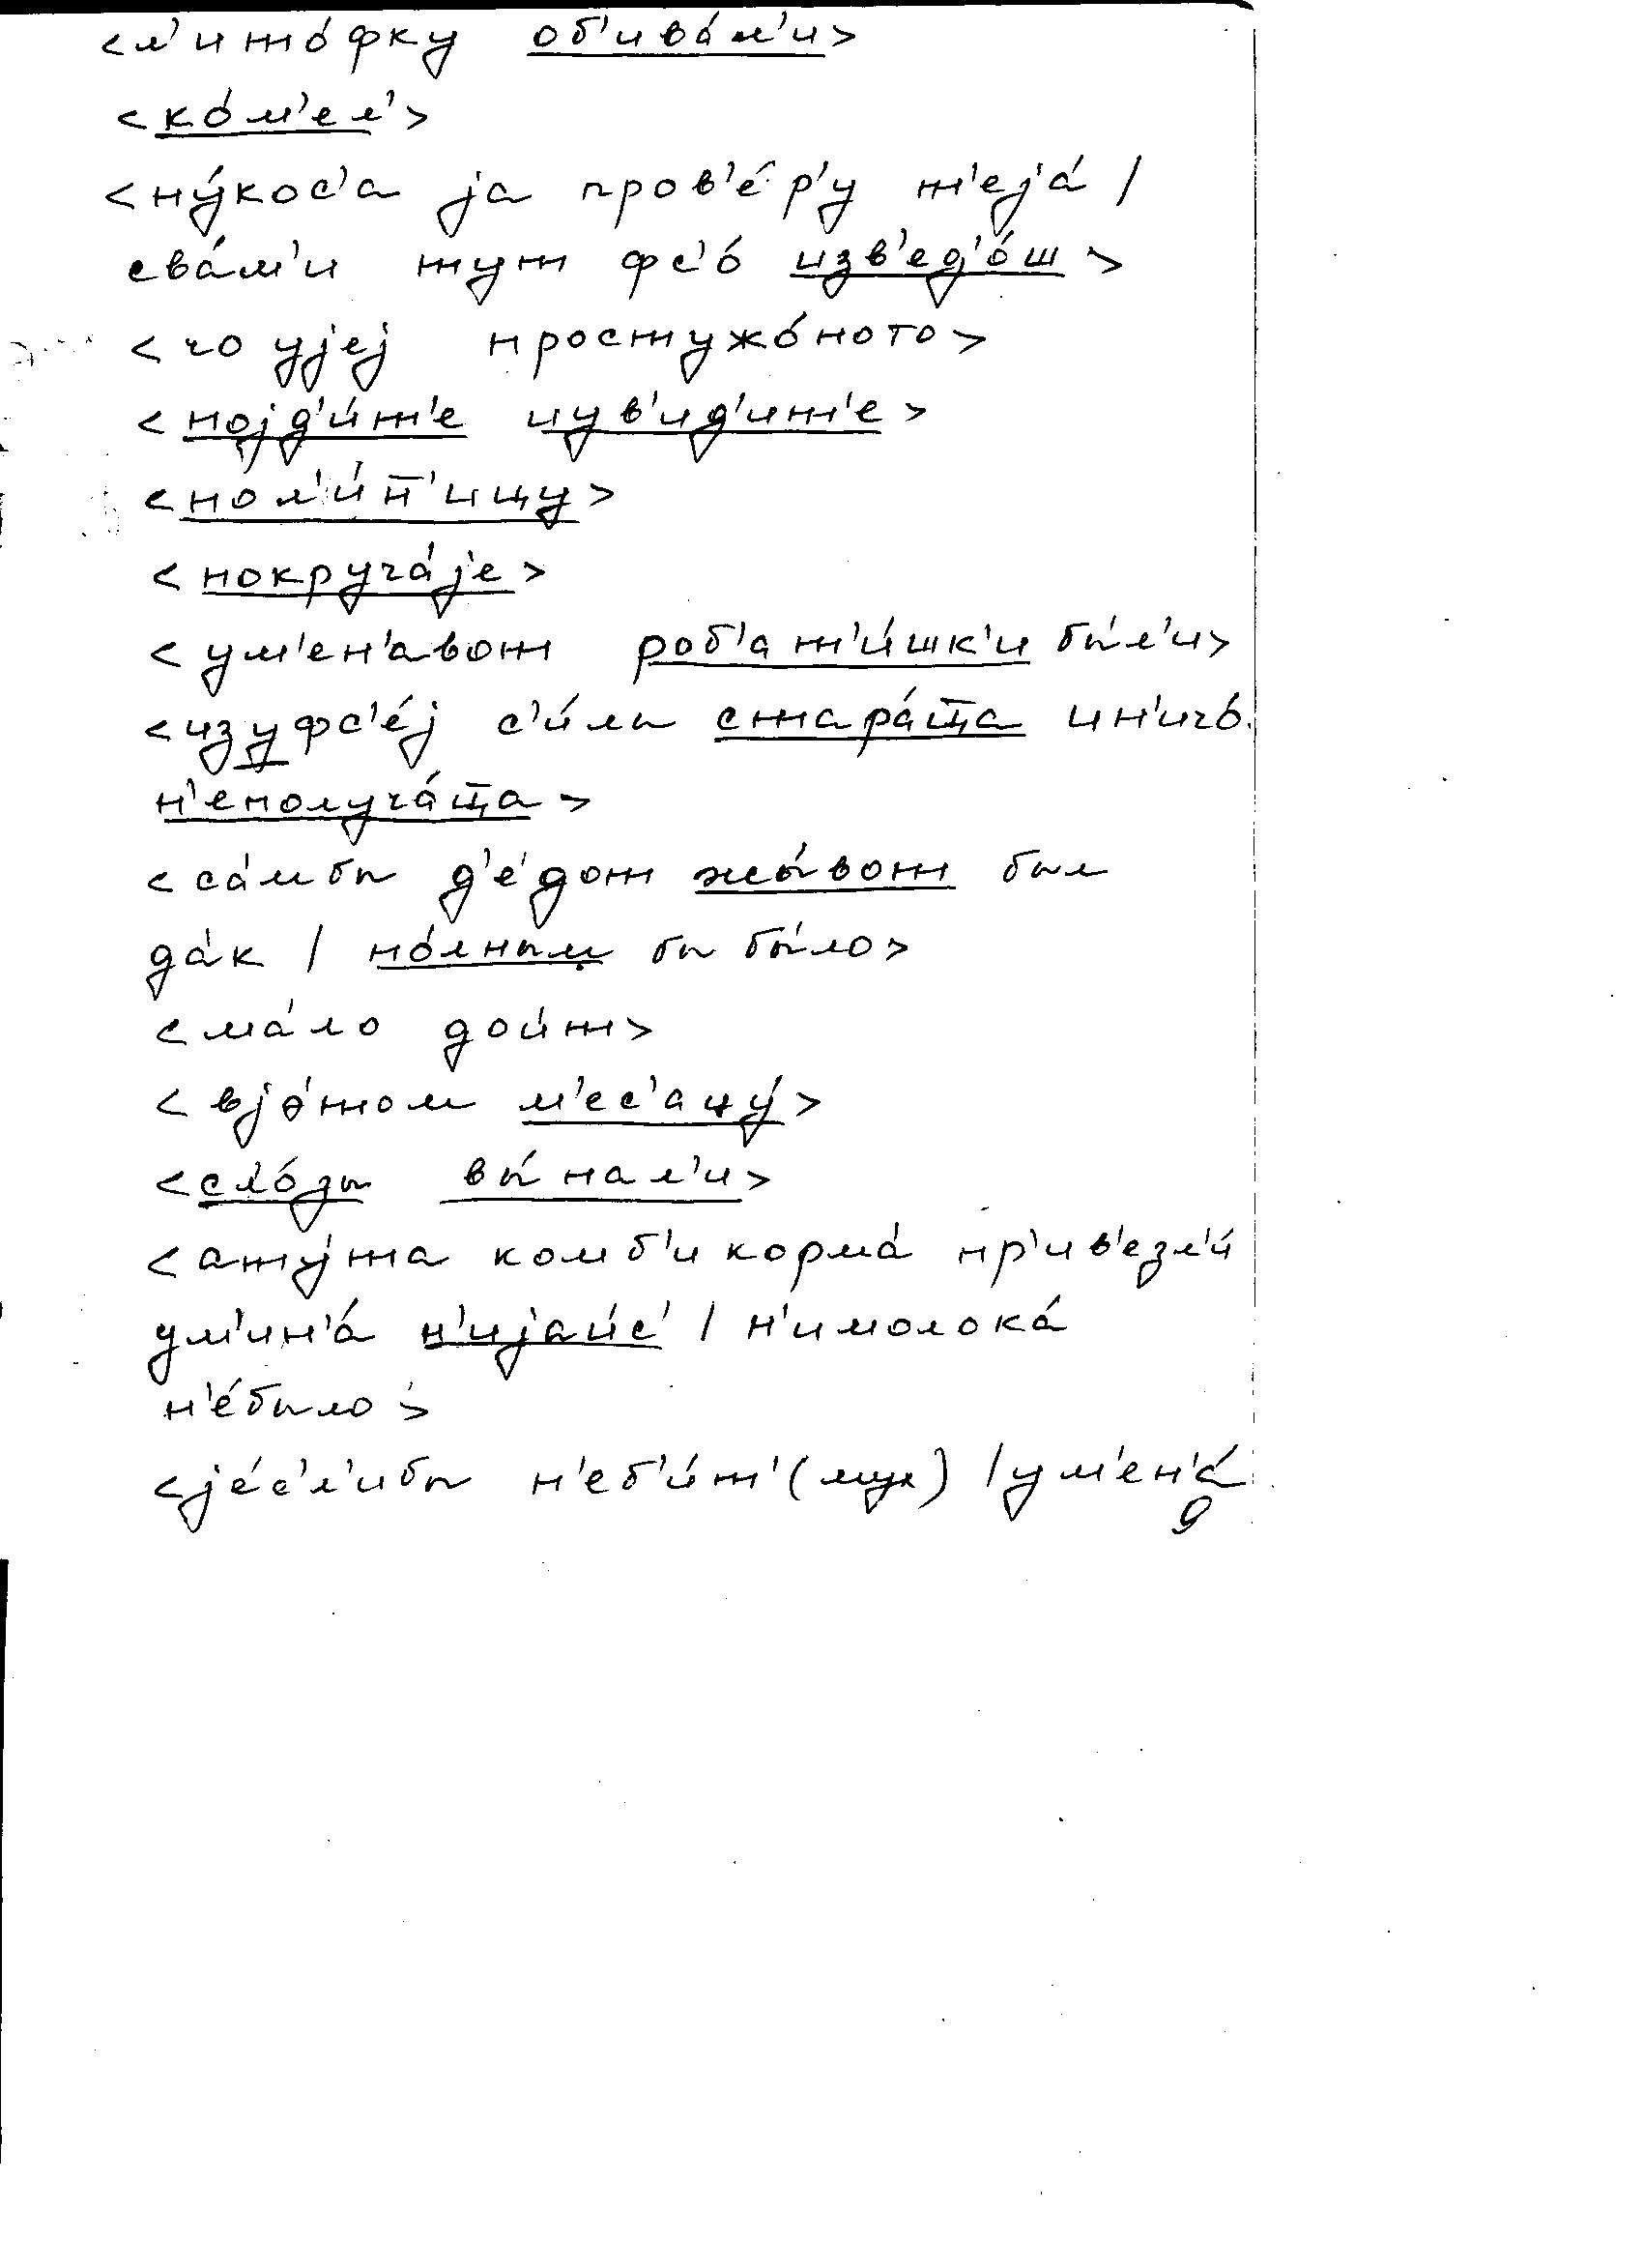 <л'ито́фку об'ива́л'и>
<ко́м'ел'>
<ну́кос'а ја пров'е́р'у т'еја́ /
сва́м'и тут фс'о́ изв'ед'о́ш>
<чо ујеј простужо́ного>
<појд'и́т'е иув'ид'ит'е>
<пол'и́п'ицу>
<покруча́је>
<ум'ен'авот роб'ат'и́шк'и бы́л'и>
<изуфс'е́ј с'и́лы стара́ц̅а ин'ичо́
н'еполуча́ц̅а>
<са́мбы д'е́дот жы́вот был
да́к / по́лным бы бы́ло>
<ма́ло дои́т>
<вјэ́том м'ес'ацу́>
<сл'о́зы вы́пал'и>
<ату́та комб'икорма́ пр'ив'езл'и́
ум'ин'а́ н'ијаи́с' / н'имолока́
н'е́было>
<је́с'л'ибы н'еб'и́т' (мух) /ум'ен'а́
9